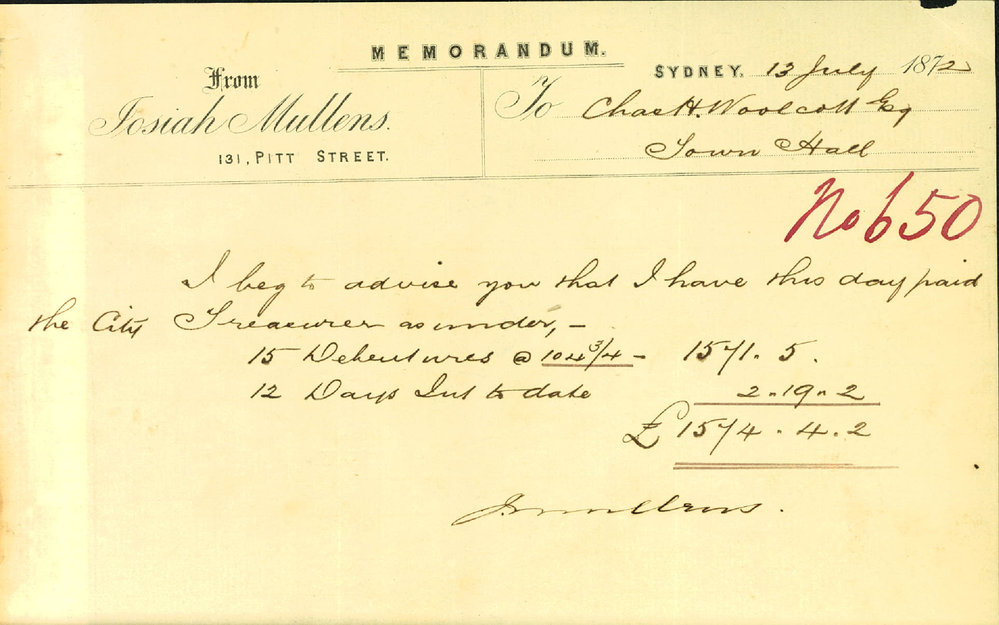 MEMORANDUM.
From
Josiah Mullens.
131, PITT STREET.
SYDNEY, 13 July 1872
To Chas H. Woolcott Esq
Town Hall
No 650
I beg to advise you that I have this day paid
the City Treasurer as under, –
15 Debentures @ 104 3/4 – 1571. 5.
12 Days Int to date 2 " 19 " 2
£ 1574. 4. 2
J Mullens.